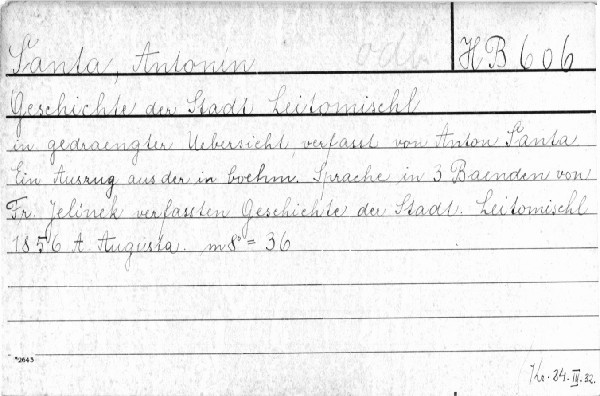 Šanta, Antonín odb HB 606
Geschichte der Stadt Leitomischl
in gedraengter Uebersicht, verfasst von Anton Šanta.
Ein Auszug aus der in boehm. Sprache in 3 Baenden von
Fr. Jelinek verfassten Geschichte der Stadt. Leitomischl
1856 A. Augusta. m8° = 36
*2643
24. IV. 32.